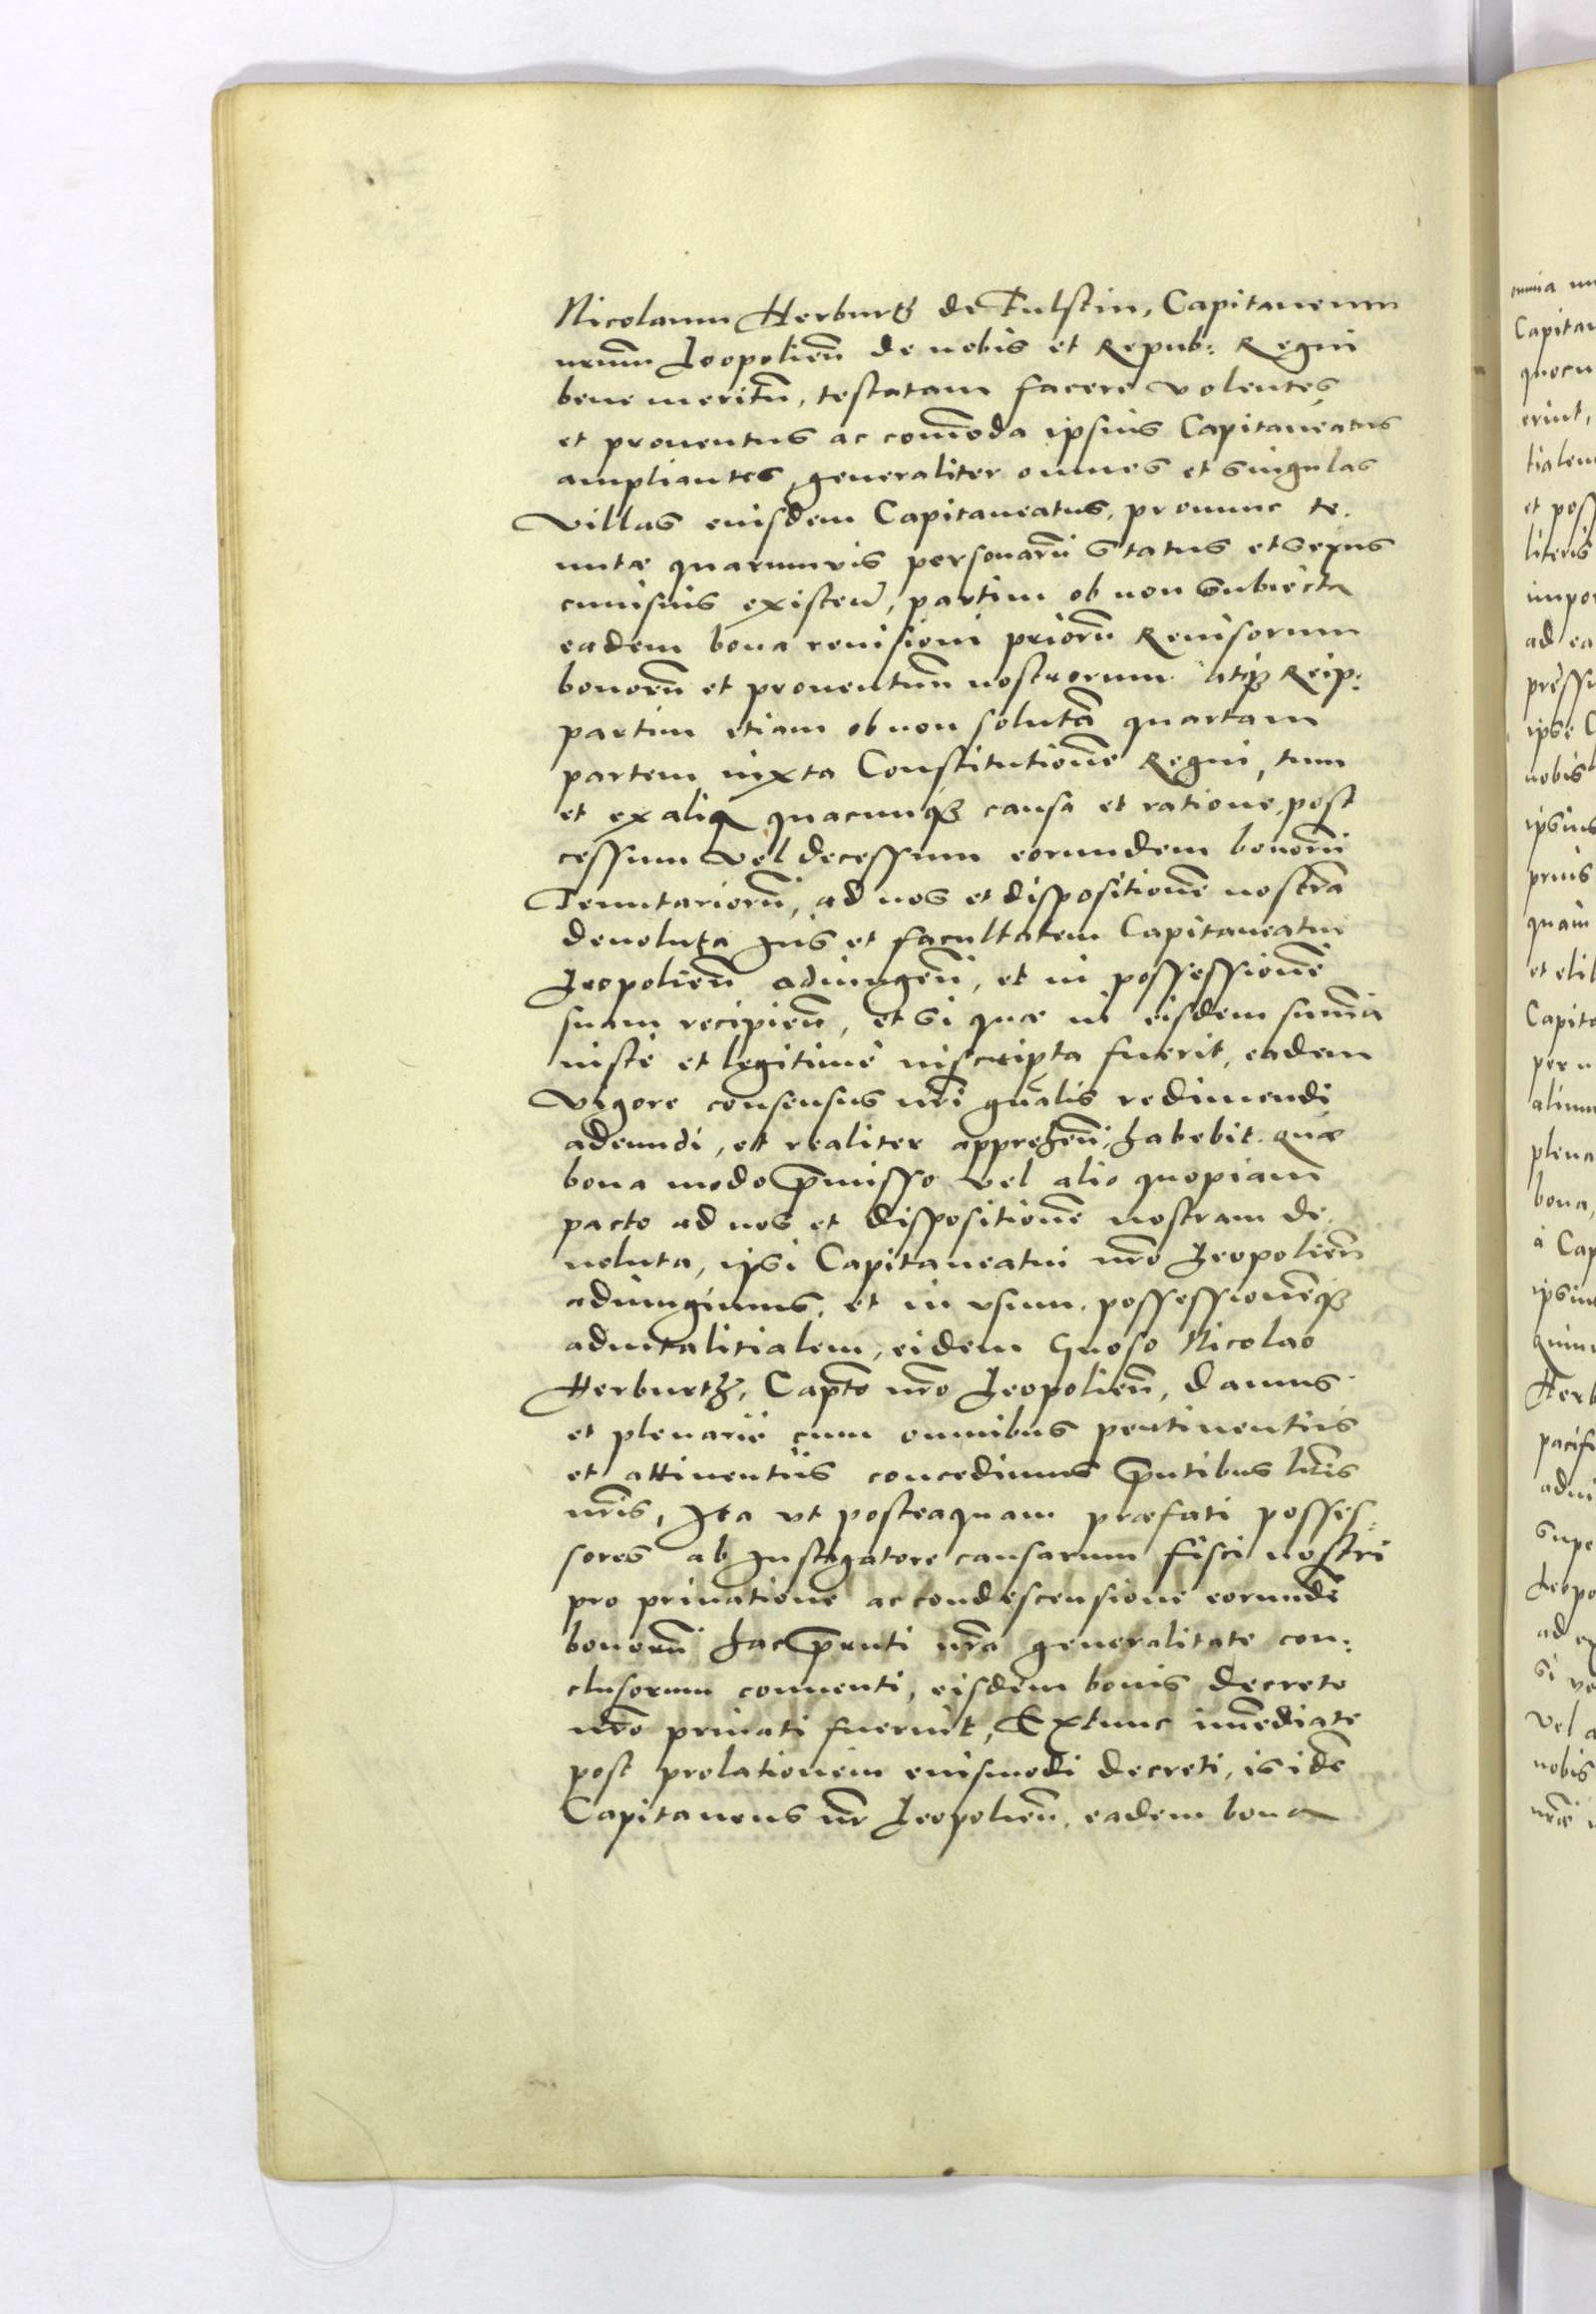 Nicolaum Herburtʒ de Fulstin, Capitaneum
nr̃um Leopolieñ de nobis et Repub: Regni
bene meritũ, testatam facere volentes
et prouentus ac com̃oda ipsius Capitaneatus
ampliantes, generaliter omnes et singulas
villas eiusdem Capitaneatus, pronunc te,
nutæ quarumvis personarũ status et sexus
cuiusvis existeñ, partim ob non subiecta
eadem bona reuisioni priorũ Reuisorum
bonorũ et prouentuũ nostrorum atqʒ Reip:
partim etiam ob non solutã quartam
partem iuxta Constitutionẽ Regni, tum
et ex alia quacunqʒ causa et ratione, post
cessum vel decessum eorundem bonorũ
Tenutariorũ, ad nos et dispositionẽ nostrã
deuoluta Ius et facultatem Capitaneatui
Leopolieñ adiungeñ, et in possessionẽ
suam recipieñ, et si quæ in eisdem sum̃a
iustè et legitimè inscripta fuerit, eadem
vigore consensus nr̃i gñalis redimendi
adeundi, et realiter appreheñ, habebit. quæ
bona modo p̃misso vel alio quopiam
pacto ad nos et dispositionẽ nostram de,
uoluta, ipsi Capitaneatui nr̃o Leopolieñ
adiungimus, et in vsum, possessionẽqʒ
aduitalitialem, eidem Gnoso Nicolao
Herburtʒ, Capt̃o nr̃o Leopolieñ, damus
et plenariè cum omnibus pertinentiis
et attinentiis concedimus p̃ntibus lr̃is
nr̃is, Ita vt posteaquam præfati posses:
sores ab Instigatore causarum fisci nostri
pro priuatione ac condescensione eorundẽ
bonorũ hac p̃senti nr̃a generalitate con:
clusorum conuenti, eisdem bonis decreto
nr̃o priuati fuerint, Extunc im̃ediate
post prolationem eiusmodi decreti, is idẽ
Capitaneus nr̃ Leopolieñ, eadem bona